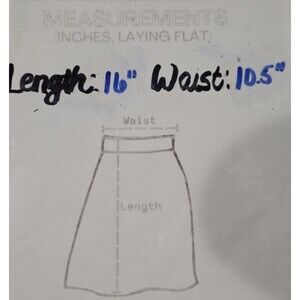 MEASUREMENTS
(INCHES, LAYING FLAT)
Length: 16" Waist: 10.5"
Waist
Length